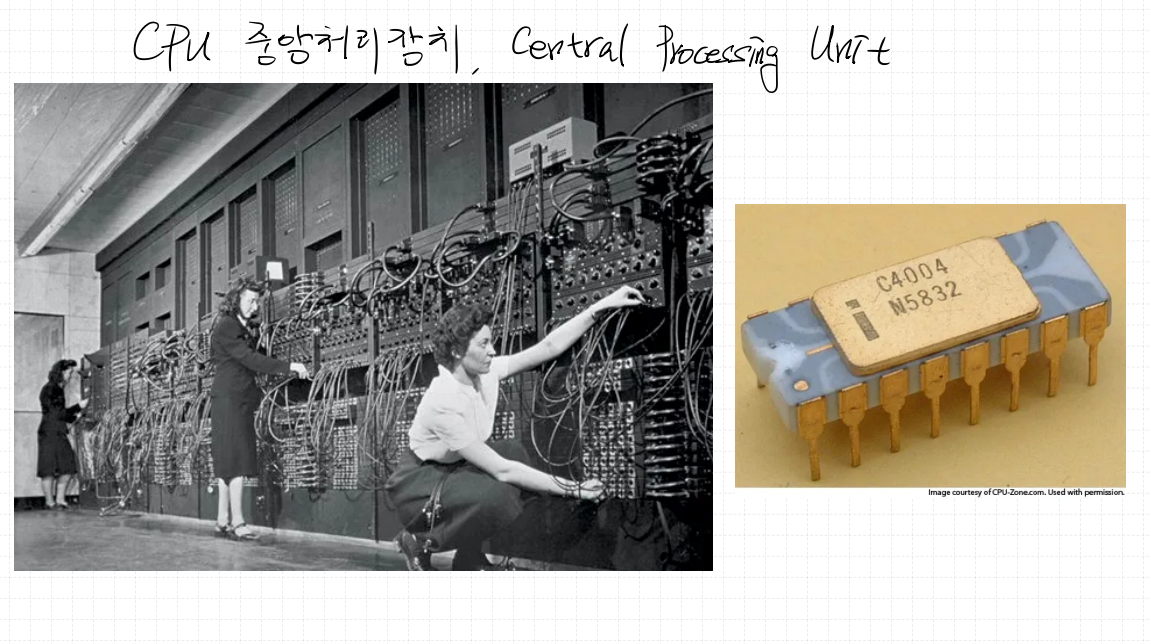 CPU 중앙처리장치, Central Processing Unit
C4004
N5832
Image courtesy of CPU-Zone.com. Used with permission.